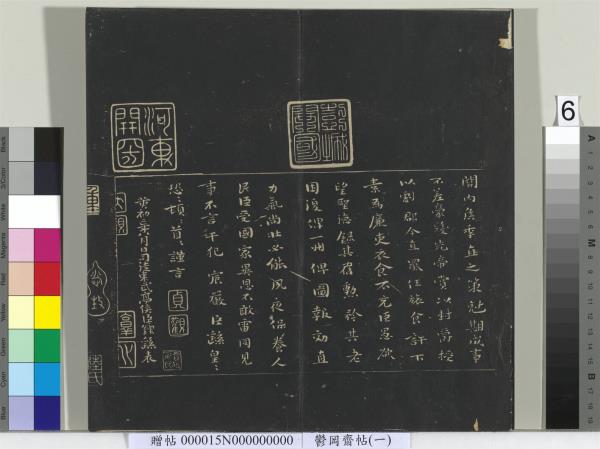 關內侯季直之策尅期成事
不差豪髮先帝賞以封爵授
以劇郡今直罷任旅食許下
素為廉吏衣食不充臣愚欲
望聖德錄其舊勳矜其老
困復俾一州俾圖報効直
力氣尚壯必能夙夜保養人
民臣受國家異恩不敢雷同見
事不言干犯宸嚴臣繇皇〻
恐〻頓〻首〻謹言
貞觀
黃初二年八月日司徒東武亭侯臣鍾繇表
河東
6
Black
3/Color
White
Magenta
Red
Yellow
Green
Cyan
Blue
贈帖 000015N000000000 鬱岡齋帖(一)